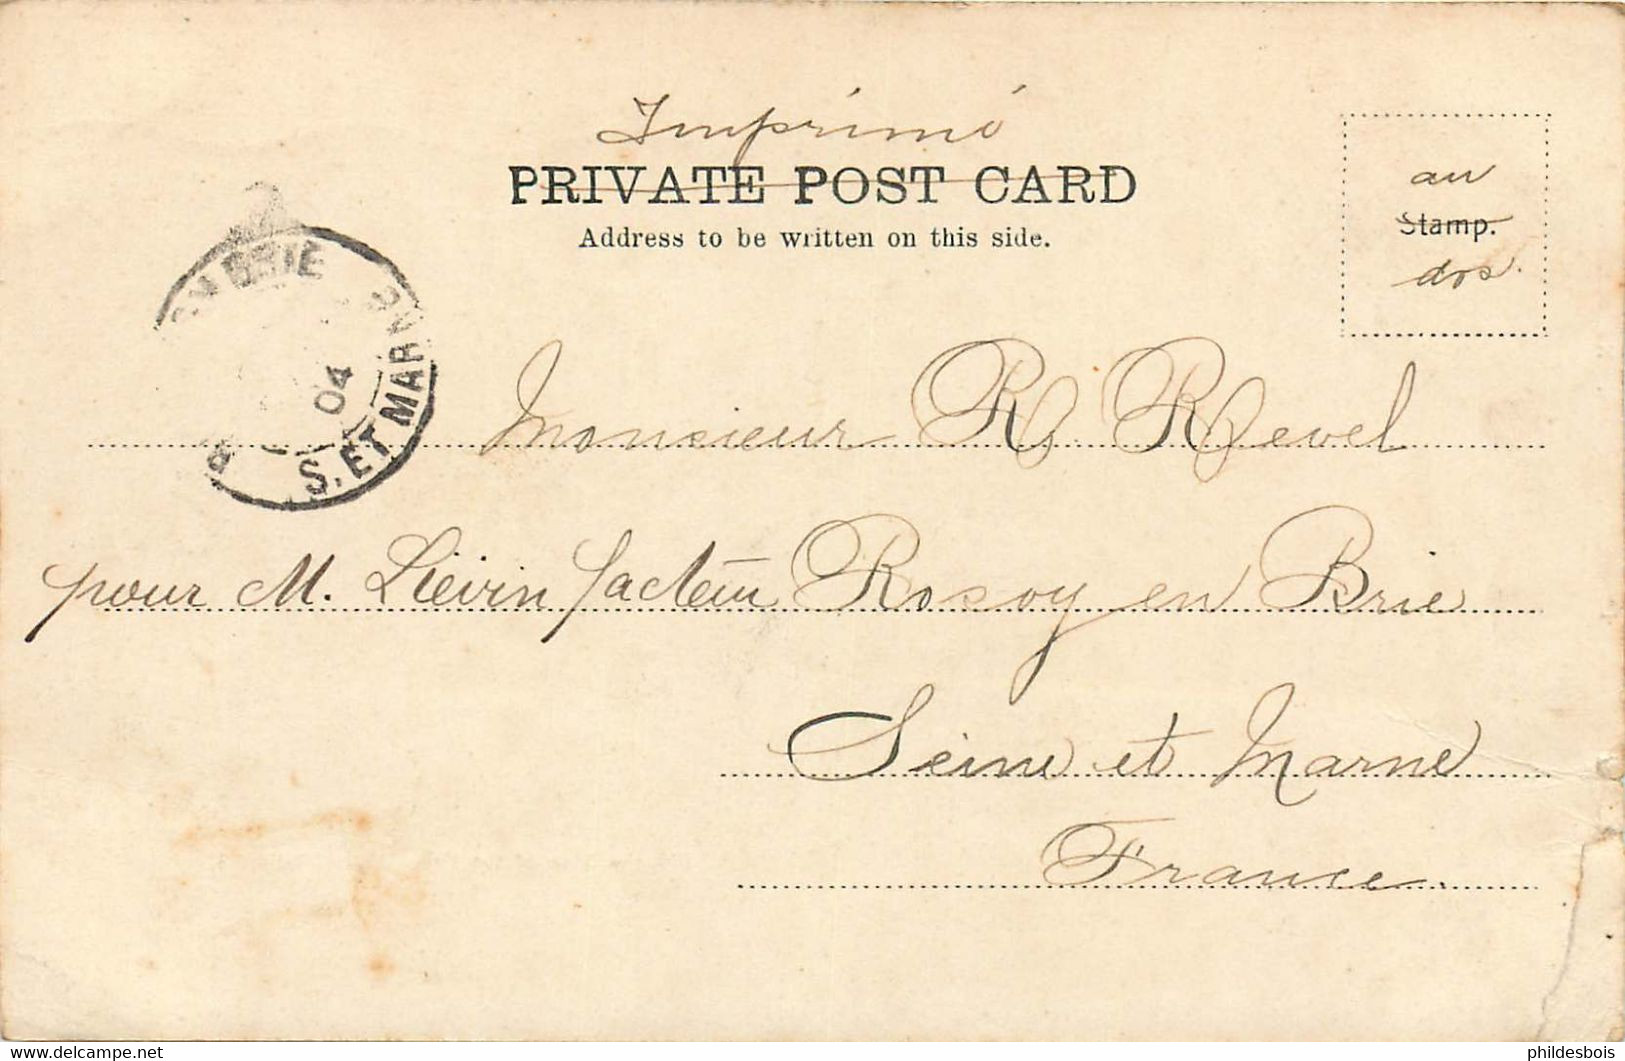 Imprimé
PRIVATE POST CARD
Address to be written on this side.
au
Stamp.
dos.
EN BRIE
04
S. ET MARNE
Monsieur R. Revel
pour M. Liévin facteur Rosoy en Brie
Seine et Marne
France.
www.delcampe.net
phildesbois